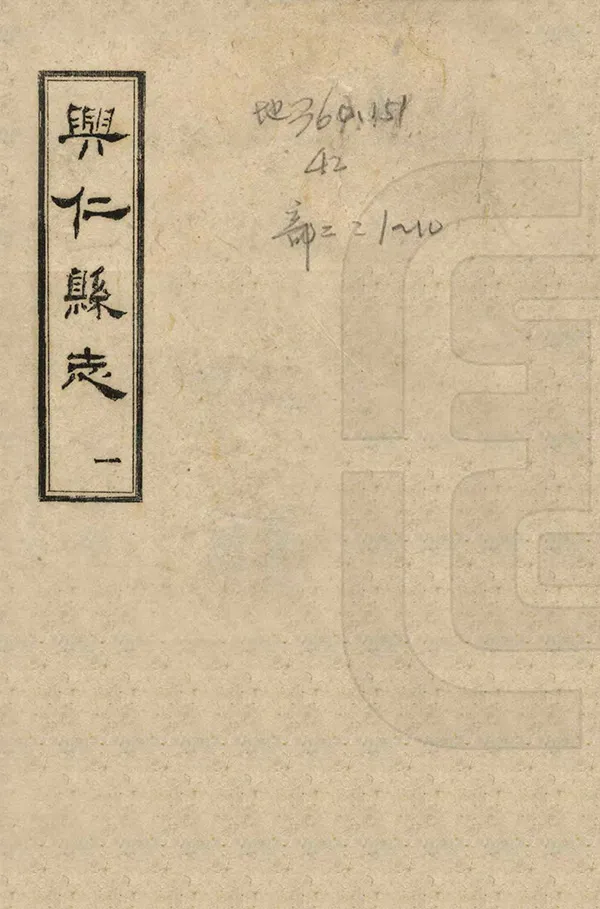 興仁縣志
一
地364.151
42
部二二1~10